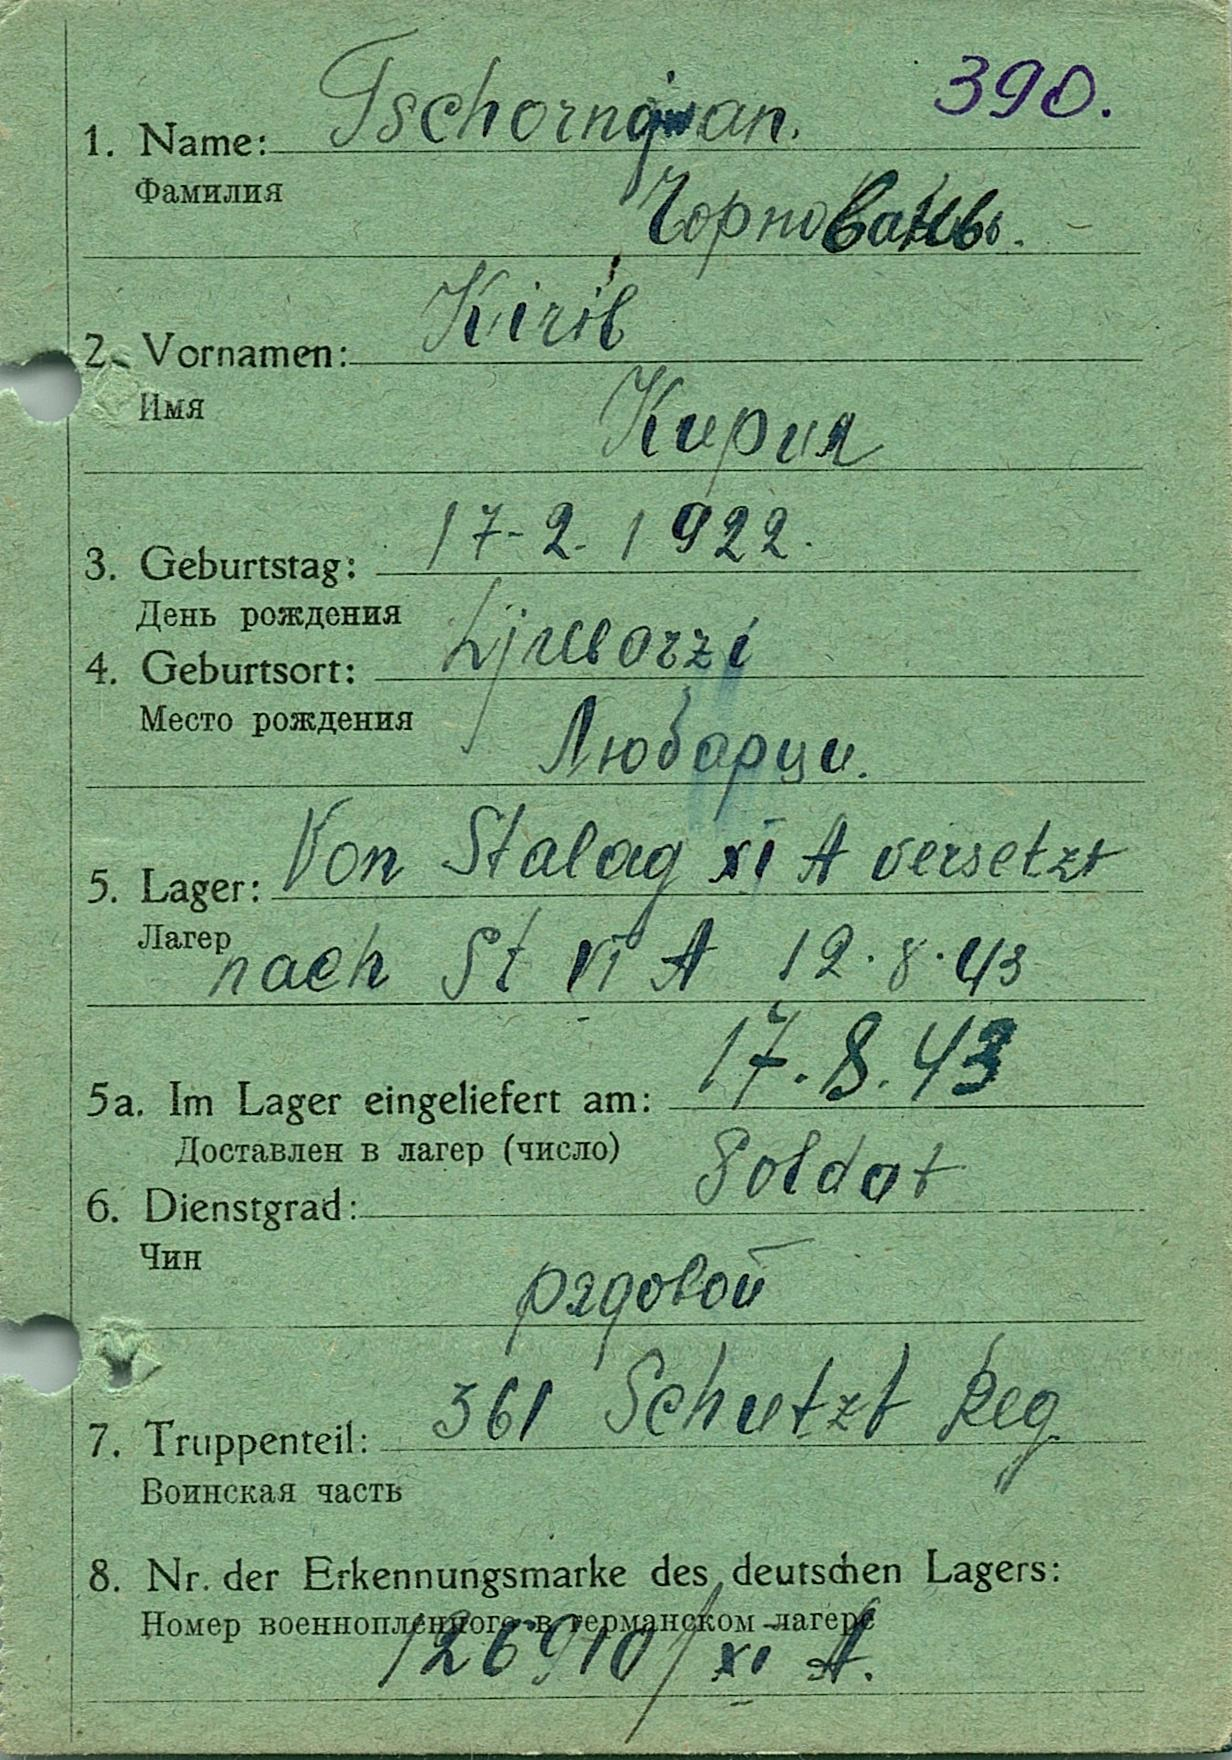 390.
1. Name: Tschornowan.
Фамилия
Чорновань.
2. Vornamen: Kiril
Имя
Кирил
3. Geburtstag: 17-2. 1922.
День рождения
4. Geburtsort: Ljubarzi
Место рождения
Любарци.
5. Lager: Von Stalag XI A versetzt
Лагер
nach St VI A 12.8.43
5a. Im Lager eingeliefert am: 17.8.43
Доставлен в лагер (число)
6. Dienstgrad: Soldat
Чин
рядовой
7. Truppenteil: 361 Schutzt Reg.
Воинская часть
8. Nr. der Erkennungsmarke des deutschen Lagers:
Номер военнопленного в германском лагере
126910/XI A.